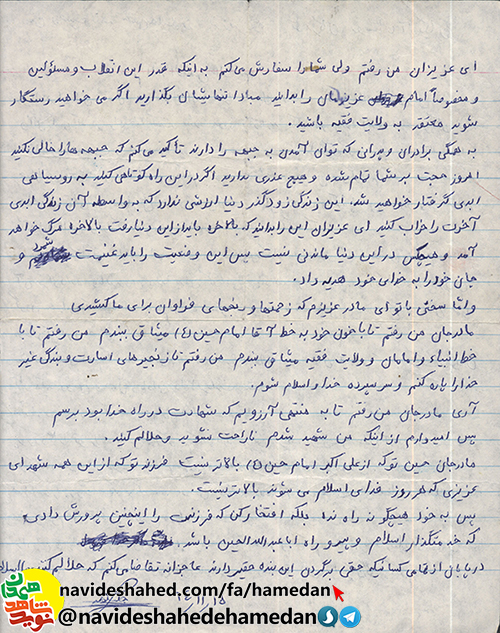 ای عزیزان من رفتم ولی شما را سفارش می‌کنم به اینکه قدر این انقلاب و مسئولین
و مخصوصاً امام عزیزمان را بدانند مبادا تنهایشان بگذارند اگر می خواهید رستگار
شوید معتقد به ولایت فقیه باشید.
به همگی برادران و پدران که توان آمدن به جبهه را دارند تأکید می‌کنم که جبهه ها را خالی نکنید
امروز حجت بر شما تمام شده و هیچ عذری ندارید اگر در این راه کوتاهی کنید به روسیاهی
ابدی گرفتار خواهید شد. این زندگی زودگذر دنیا ارزشی ندارد که به واسطه آن زندگی ابدی
آخرت را خراب کنند ای عزیزان این را بدانید که بالاخره باید از این دنیا رفت بالاخره مرگ خواهد
آمد و هیچکس در این دنیا ماندنی نیست پس این وضعیت را باید غنیمت شمرد و
جان خود را به خدای خود هدیه داد.
و اما سخنی با تو ای مادر عزیزم که زحمتها و رنجهای فراوان برای ما کشیدی
مادر جان من رفتم تا با خون خود به خط آقا امام حسین (ع) میثاق بندم من رفتم تا با
خط انبیاء و امامان و ولایت فقیه میثاق بندم من رفتم تا زنجیرهای اسارت و بندگی غیر
خدا را پاره کنم و سرسپرده خدا و اسلام شوم.
آری مادر جان من رفتم تا به منتهی آرزویم که شهادت در راه خدا بود برسم
پس امیدوارم از اینکه من شهید شدم ناراحت نشوید و حلالم کنید.
مادر جان حسین تو که از علی اکبر امام حسین (ع) بالاتر نیست فرزند تو که از این همه شهدای
عزیزی که هر روز فدای اسلام می شوند بالاتر نیست.
پس به خود هیچگونه راه نده بلکه افتخار کن که فرزندی را اینچنین پرورش دادی
که خدمتگذار اسلام و پیرو راه اباعبدالله الحسین باشد
در پایان از تمامی کسانیکه حقی بر گردن این بنده حقیر دارند عاجزانه تقاضا می کنم که حلالم کنند
navideshahed.com/fa/hamedan
navideshahedehamedan
نوید شاهد
همدان